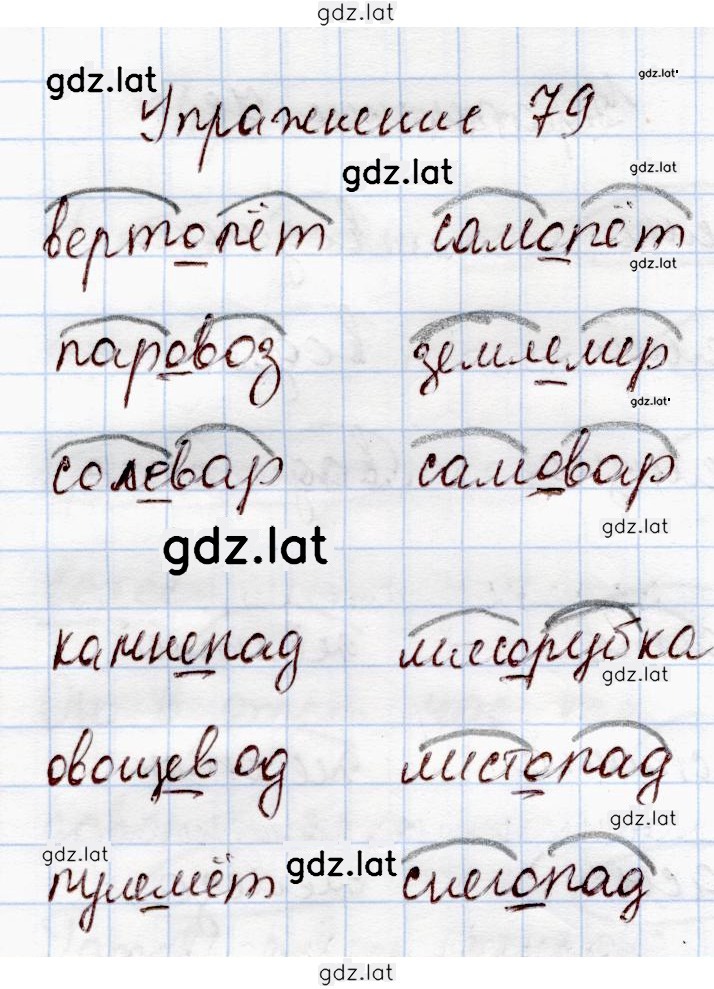 gdz.lat
gdz.lat
gdz.lat'
Упражнение 79
gdz.lat
gdz.lat
вертолёт самолёт
gdz.lat
паровоз землемер
gdz.lat'
солевар самовар
gdz.lat
gdz.lat
камнепад мясорубка
gdz.lat
овощевод листопад
gdz.lat
gdz.lat
gdz.lat
пулемёт снегопад
gdz.lat